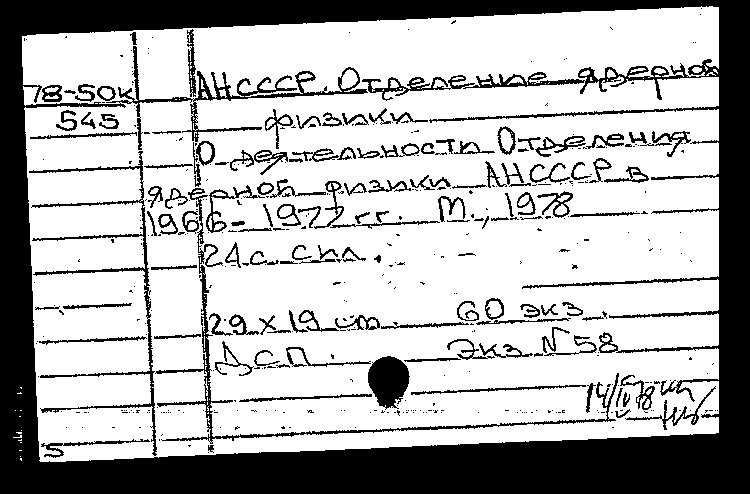 78-50к АН СССР. Отделение ядерной
545 физики
О деятельности Отделения
ядерной физики АН СССР в
1966-1977 гг. М., 1978
24 с. с ил.
29 х 19 cm. 60 экз.
ДСП. Экз N 58
14/IV 78
5